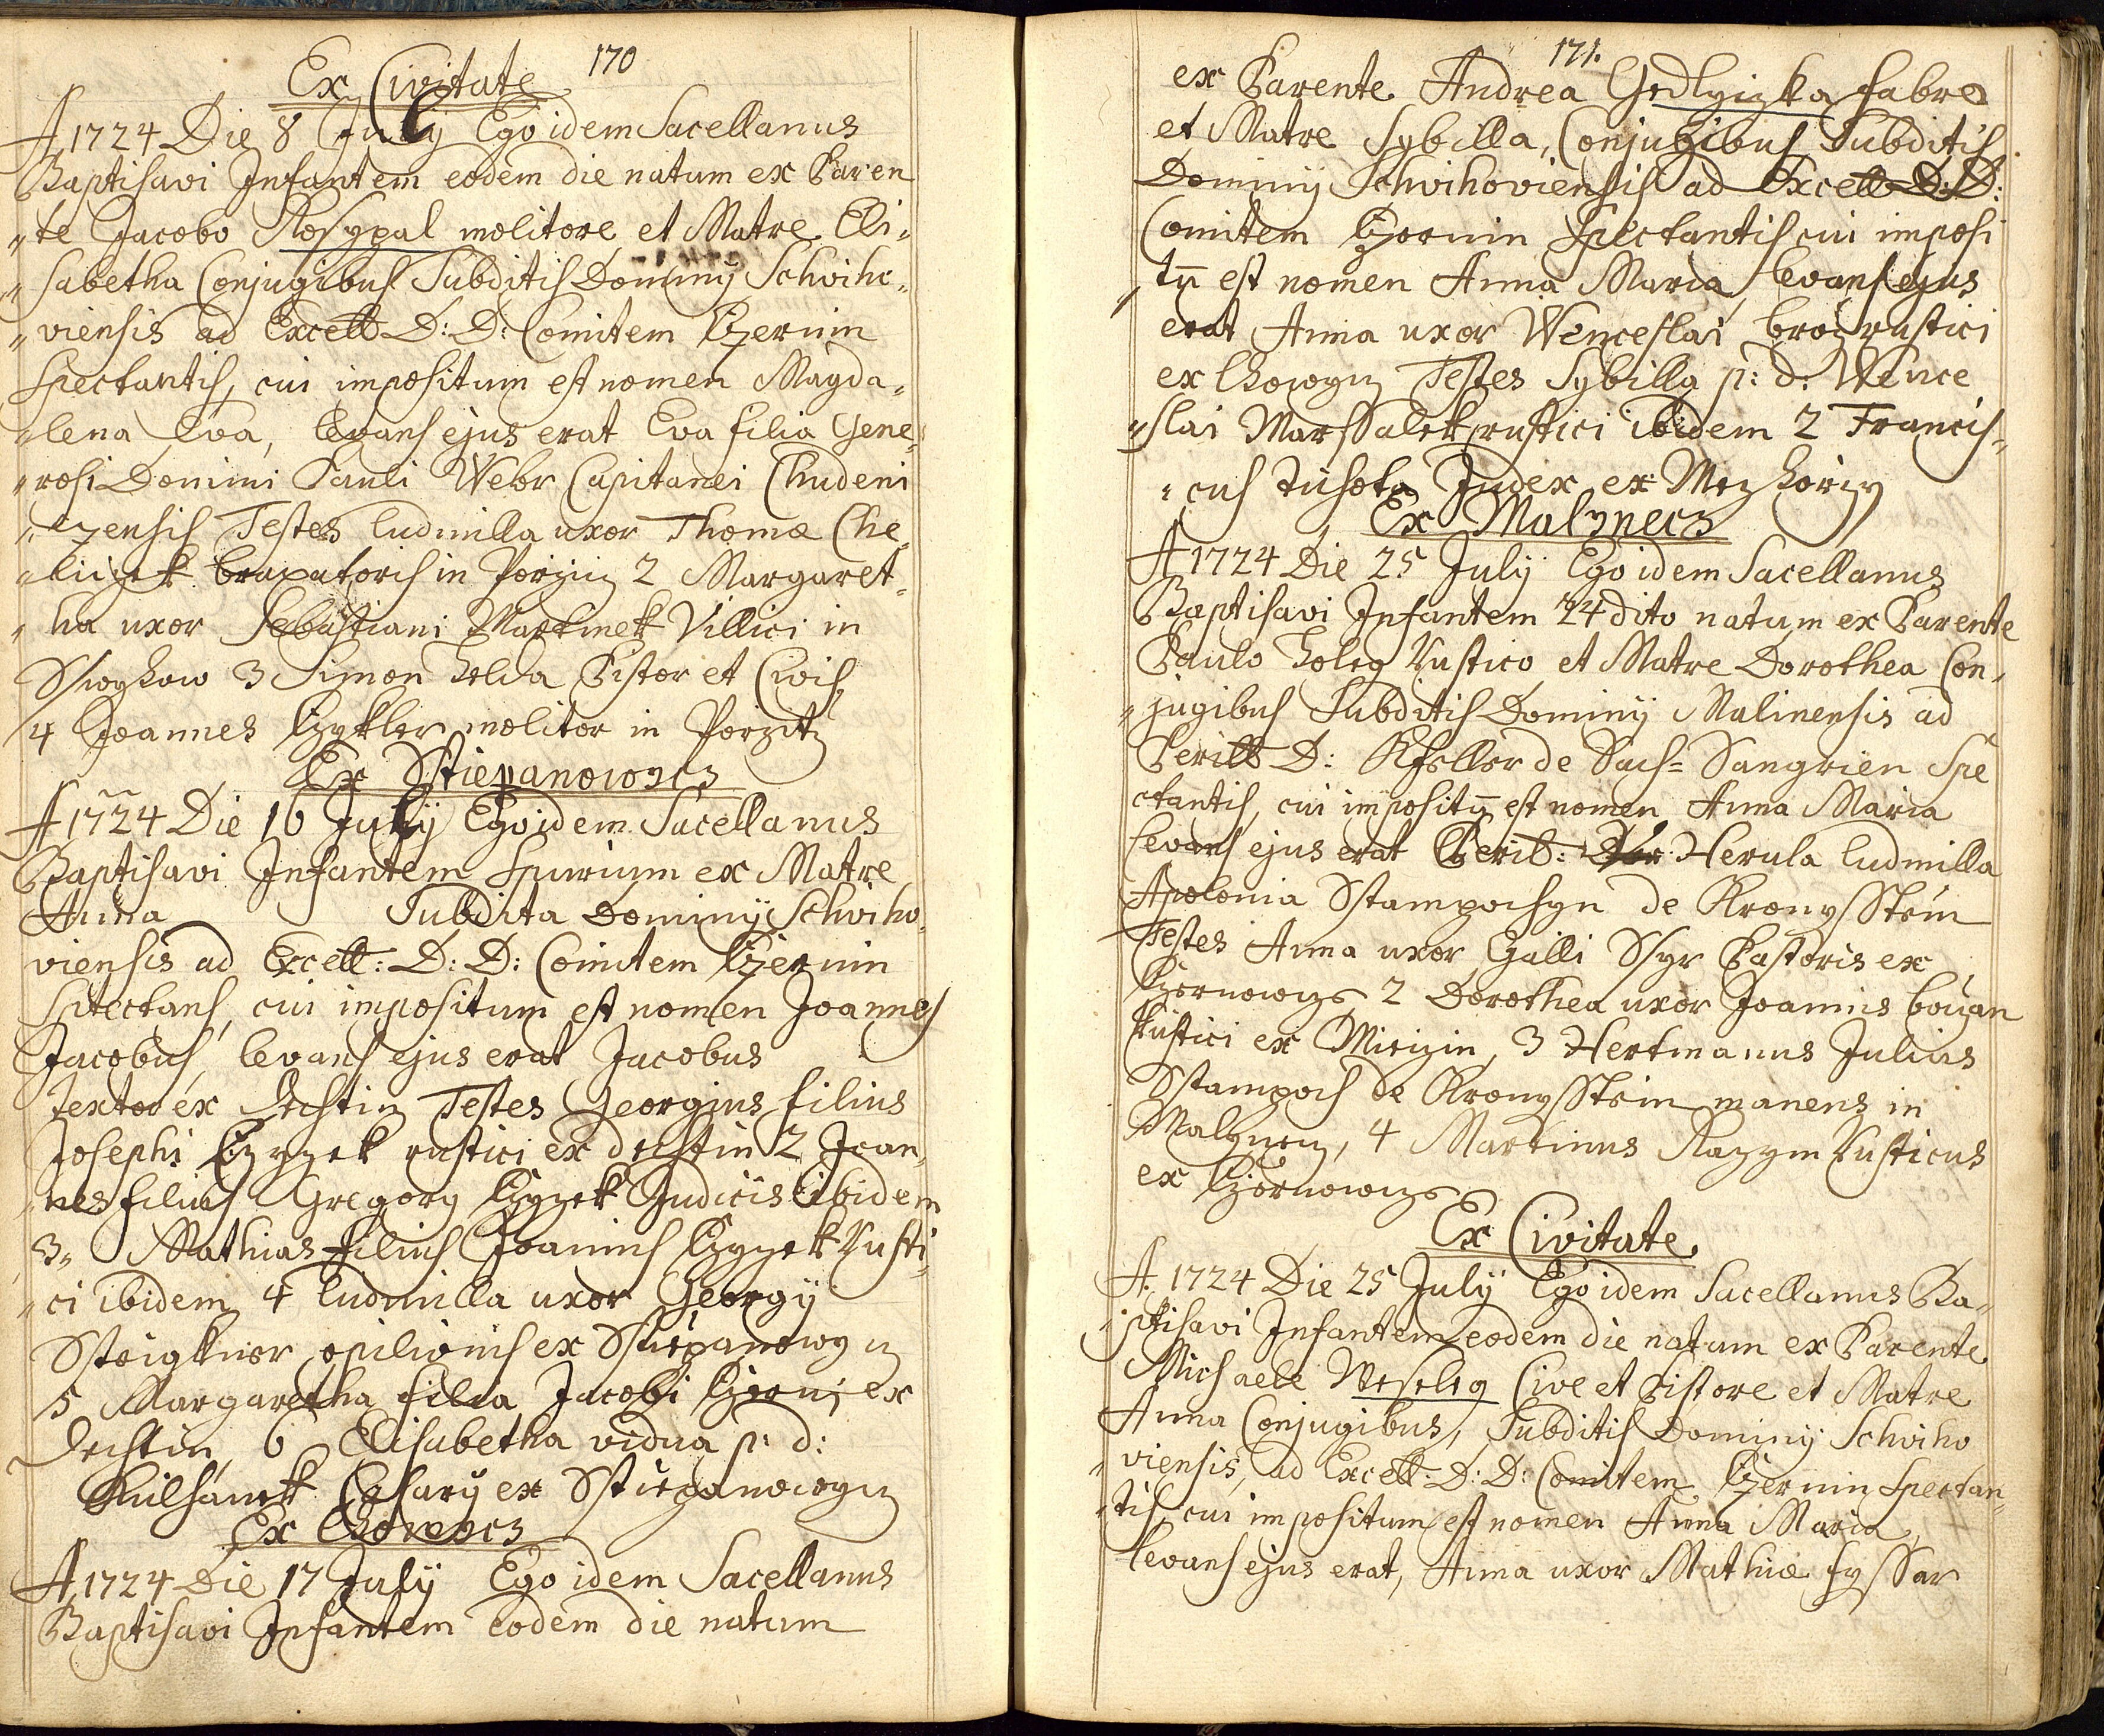 170
Ex Civitate
A 1724 Die 8 July Ego idem Sacellanus
Baptisavi Infantem eodem die natum ex Paren
„te Jacobo Rosypal molitore et Matre Eli„
„sabetha Conjugibus Subditis Dominÿ Schviho„
„viensis ad Excell D: D: Comitem Czernin
Spectantis, cui impositum est nomen Magda„
„lena Eva, levans ejus erat Eva filia Gene„
„rosi Domini Pauli Webr Capitanei Chudeni
„czensis Testes Ludmilla uxor Thomæ Che„
„liczek braxatoris in Porziczj 2 Margaret„
„ha uxor Sebastiani Martinek Villici in
3 Simon Holda Pistor et Civis,
4 Joannes Czykler molitor in Porzitz
Ex Sstiepanowycz
A 1724 Die 16 July Ego idem Sacellanus
Baptisavi Infantem Spurium ex Matre
Anna Subdita Dominÿ Schviho„
viensis ad Excell: D: D: Comitem Czernin
Sptectans, cui impositum est nomen Joannes
Jacobus, levans ejus erat Jacobus
textor ex Dehstin Testes Georgius filius
Josephi Czyzek rustici ex Dehstin 2 Joan„
nes filius Gregory Czyzek Judicis ibidem
3„ Mathias filius Joannis Czyzek Rusti„
„ci ibidem 4 Ludmilla uxor Georgÿ
opilionis ex Sstiepanowycz
5 Margaretha filia Jacobi Czerni ex
Dehstin, 6 Elisabetha vidua p: d:
ex Sstiepanowycz
Ex Chowycz
A 1724 Die 17 July Ego idem Sacellanus
Baptisavi Infantem eodem die natum
171.
ex Parente Andrea Gedlyczka fabro
et Matre Sybilla, Conjugibus Subditis
Dominÿ Schvihoviensis ad Excell D: D:
Comitem Czernin Spectantis cui imposi
„tu̅ est nomen Anna Maria, levans ejus
erat Anna uxor Wenceslai broz rustici
ex Chowycz Testes Sybilla p: d: Wence
„slai Marssalek rustici ibidem 2 Francis„
„cus Tusota Judex ex Mezhorzy
Ex Malynecz
A 1724 Die 25 July Ego idem Sacellanus
Baptisavi Infantem 24 dito natum ex Parente
Paulo Holey Rustico et Matre Dorothea Con„
„jugibus Subditis Dominÿ Malinensis ad
Perill D: Kfeller de Sach= Sangrien Spe
ctantis, cui impositu̅ est nomen Anna Maria
levans ejus erat Peril: Herula Ludmilla
Apolonia Sstampochyn de KronysStein
Testes Anna uxor Galli Ssyr Pastoris ex
Czernowycze 2 Dorothea uxor Joannis bouzan
Rustici ex Mirizin, 3 Hertmannus Julius
Sstampoch de KronysStein manens in
Malynczy, 4 Martinus Razym Rusticus
ex Czernowycze
Ex Civitate.
A. 1724 Die 25 July Ego idem Sacellanus Ba„
„ptisavi Infantem eodem die natum ex Parente
Michaele Weseley Cive et Pistore et Matre
Anna Conjugibus, Subditis Dominÿ Schviho
„viensis, ad Excell: D: D: Comitem Czernin Spectan„
„tis, cui impositum est nomen Anna Maria,
levans ejus erat, Anna uxor Mathiæ fyssar